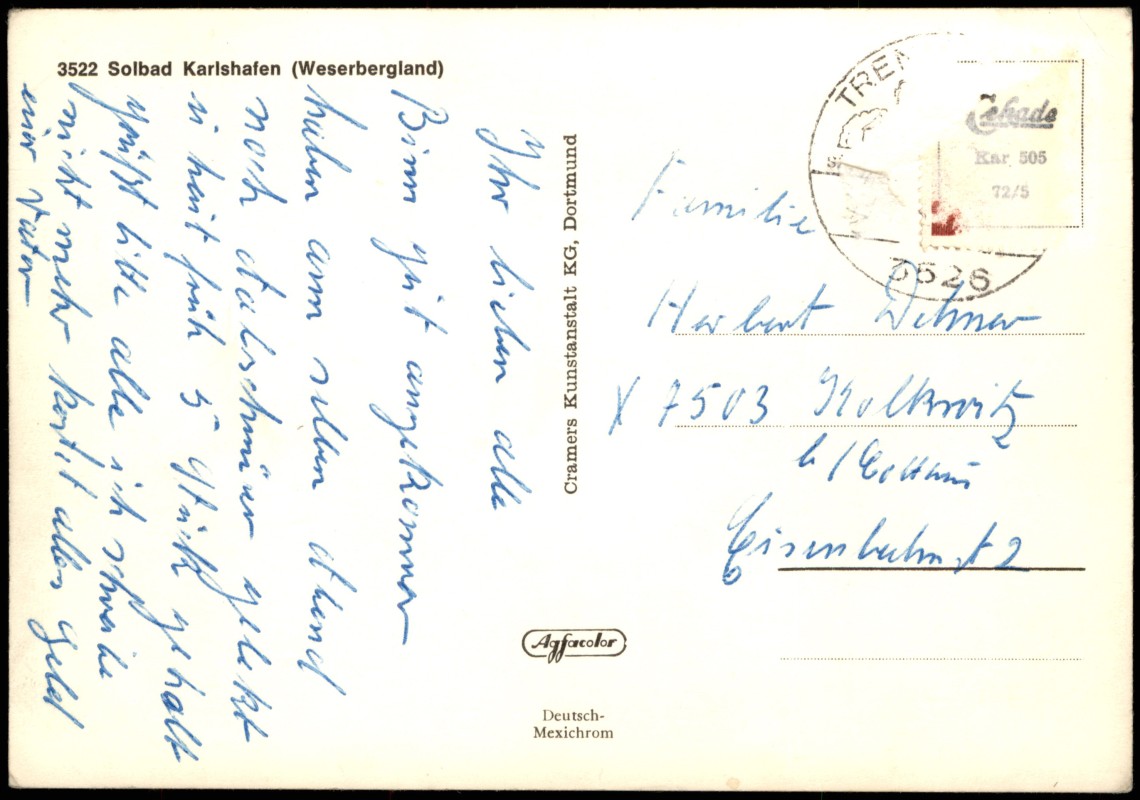 3522 Solbad Karlshafen (Weserbergland)
Ihr lieben alle
Binn gut angekommen
haben am selben abend
noch dalschniver gelekt
u heut früh 5 Stück gehalt
grüßt bitte alle ich schreibe
nicht mehr kostet alles Geld
euer Vater
Cramers Kunstanstalt KG, Dortmund
Agfacolor
Deutsch-
Mexichrom
TREN
3526
Cekade
Kar 505
72/5
Familie
Herbert Dehner
X 7503 Kolkwitz
b/Cottbus
Eisenbahnst 2